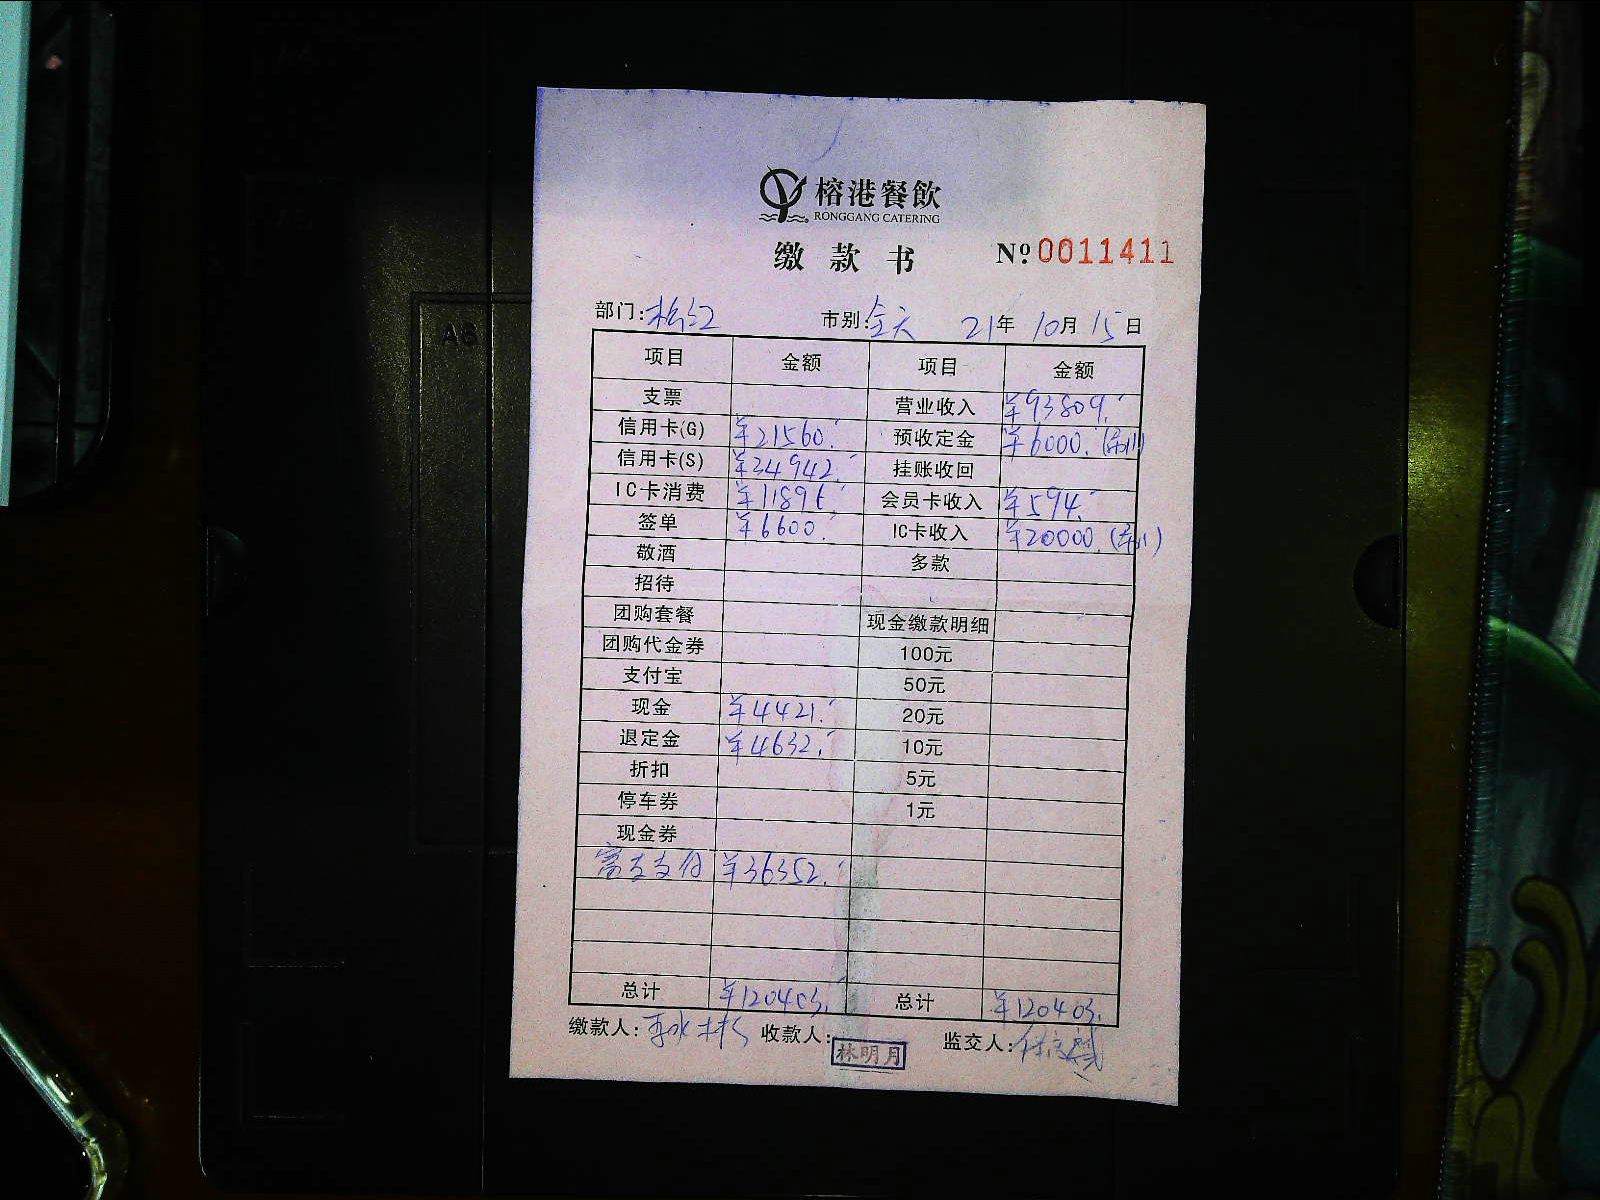 榕港餐飲
RONGGANG CATERING
缴款书 №0011411
部门:松江 市别:全天 21年 10月 15日
项目 金额 项目 金额
支票 营业收入 ¥93809.
信用卡(G) ¥21560. 预收定金 ¥6000.
信用卡(S) ¥34942. 挂账收回
IC卡消费 ¥11896. 会员卡收入 ¥594.
签单 ¥6600. IC卡收入 ¥20000.
敬酒 多款
招待
团购套餐 现金缴款明细
团购代金券 100元
支付宝 50元
现金 ¥4421. 20元
退定金 ¥4632. 10元
折扣 5元
停车券 1元
现金券
富友支付 ¥36352.
总计 ¥120403. 总计 ¥120403.
缴款人: 收款人:林明月 监交人:
A6